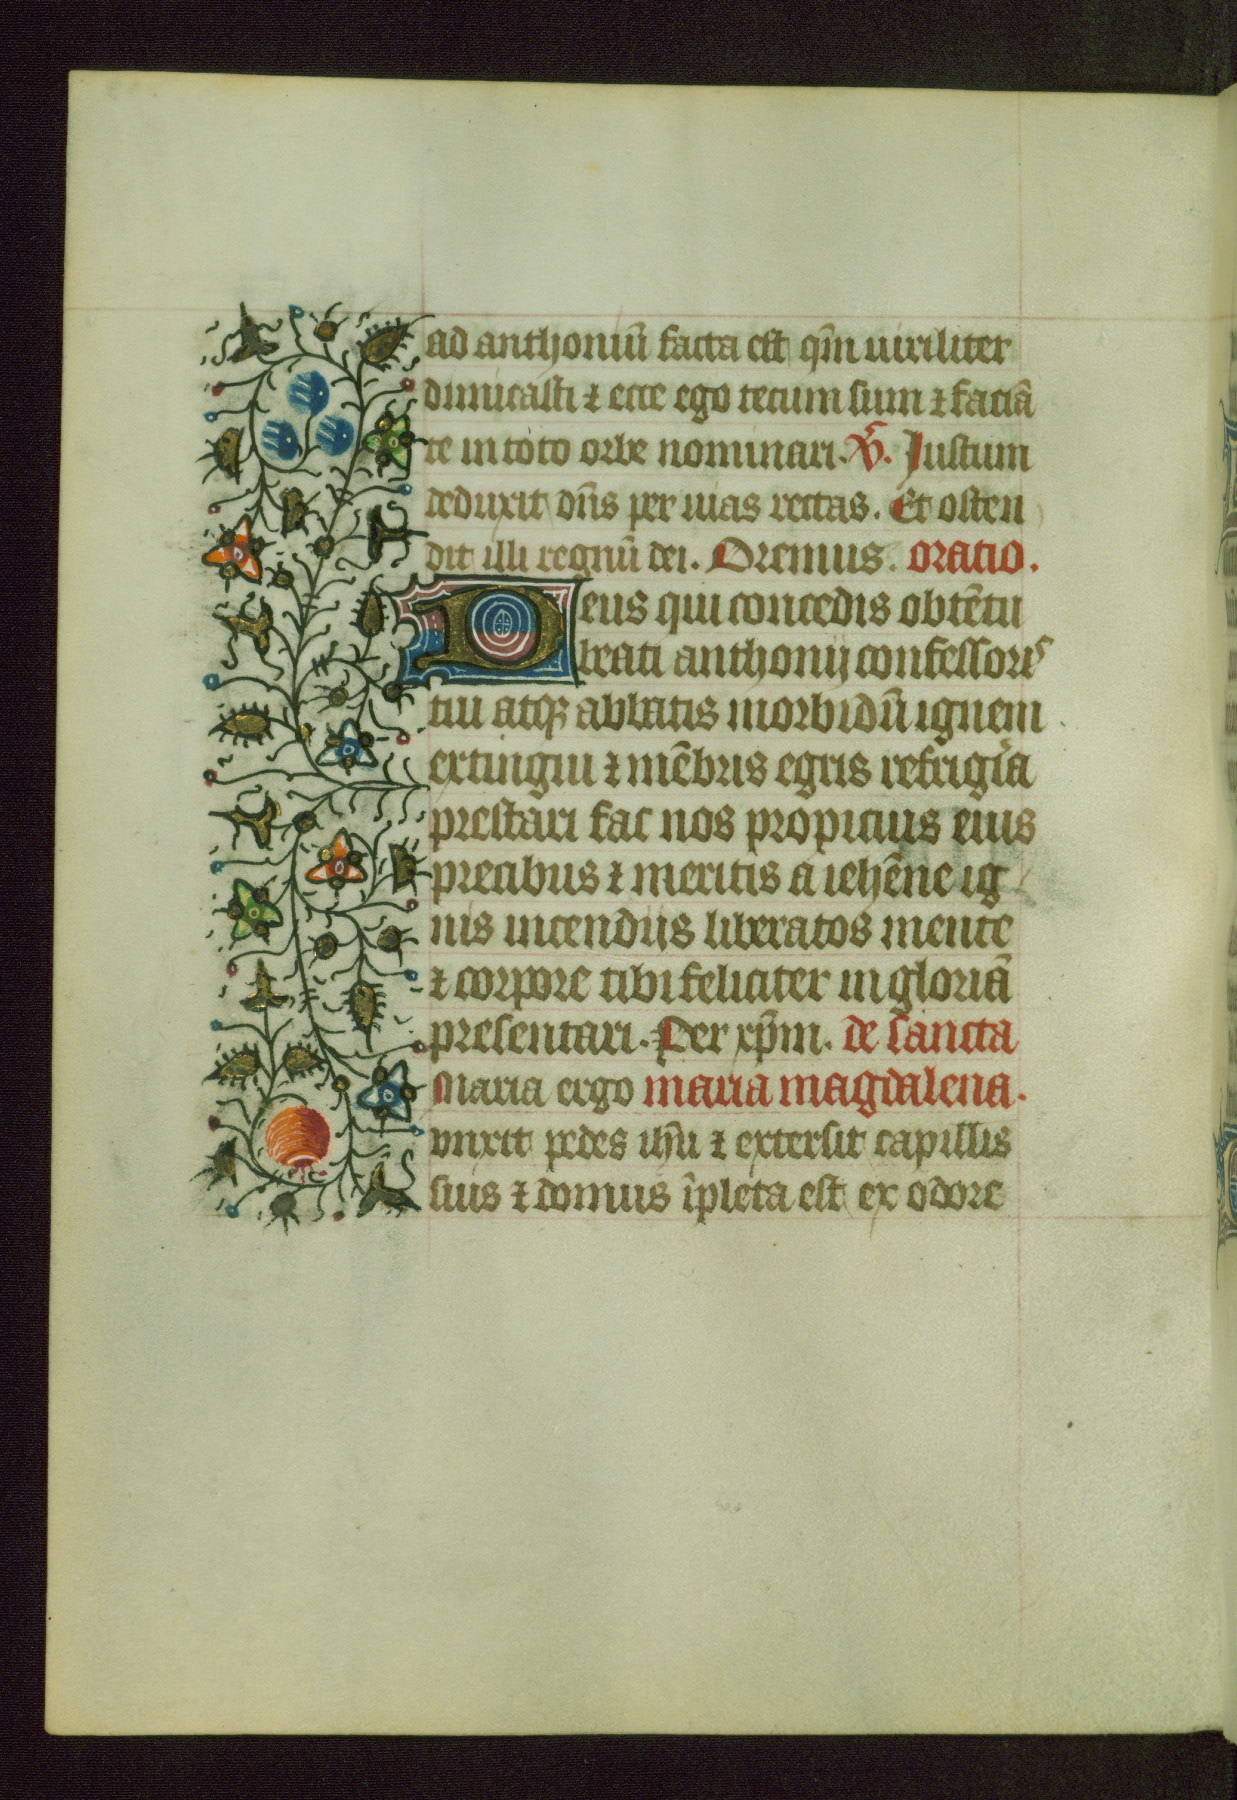 ad anthoniū facta est qm̄ uiriliter
dimicasti ⁊ ecce ego tecum sum ⁊ faciā
te in toto orbe nominari. V̄. Justum
deduxit dn̄s per uias rectas. Et osten
dit illi regnū dei. Oremus. oratio.
Deus qui concedis obtētu
beati anthonij confessoris
tui atqꝫ ablatis morbidū ignem
extingui ⁊ mēbris egris refrigia
prestari fac nos propicius eius
precibus ⁊ meritis a iehēne ig
nis incendijs liberatos mente
⁊ corpore tibi feliciter in gloriā
presentari. Per xp̄m. de sancta
Maria ergo maria magdalena.
vnxit pedes ih̄u ⁊ extersit capillis
suis ⁊ domus īpleta est ex odore